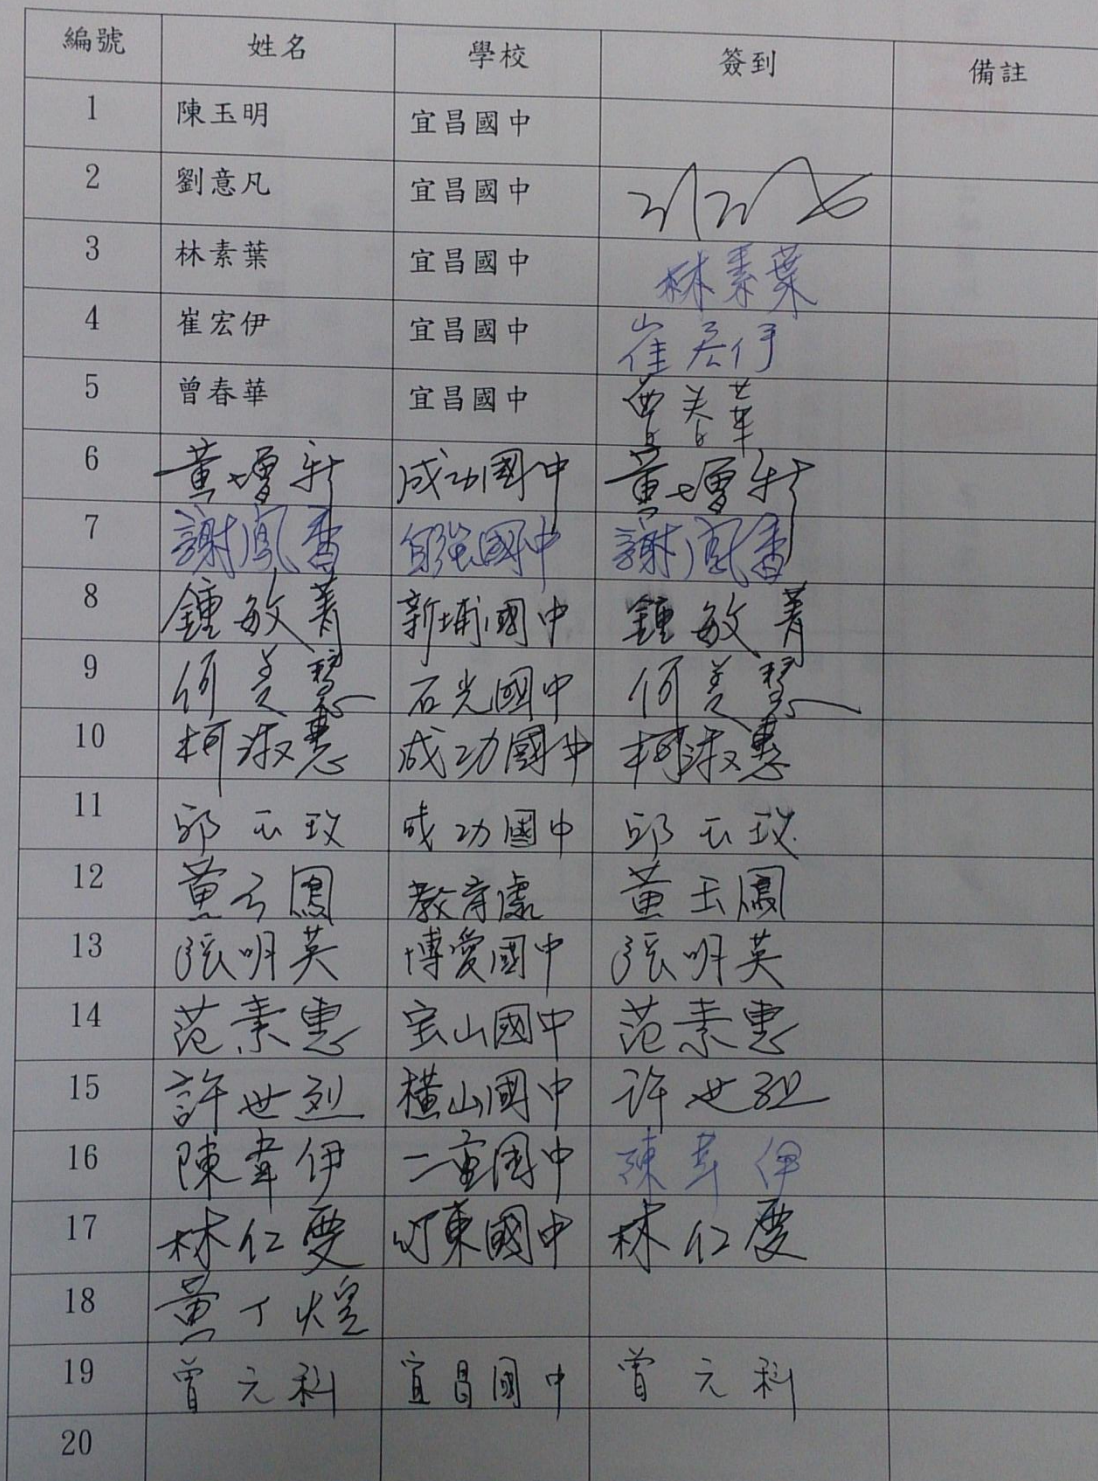 編號 姓名 學校 簽到 備註
1 陳玉明 宜昌國中
2 劉意凡 宜昌國中
3 林素葉 宜昌國中 林素葉
4 崔宏伊 宜昌國中 崔宏伊
5 曾春華 宜昌國中 曾春華
6 黃增新 成功國中 黃增新
7 謝鳳香 自強國中 謝鳳香
8 鍾敏菁 新埔國中 鍾敏菁
9 何美慧 石光國中 何美慧
10 柯淑惠 成功國中 柯淑惠
11 邱玉玫 成功國中 邱玉玫
12 黃玉鳳 教育處 黃玉鳳
13 張明英 博愛國中 張明英
14 范素惠 宝山國中 范素惠
15 許世烈 橫山國中 许世烈
16 陳韋伊 二重国中 陳韋伊
17 林仁 竹東國中 林仁
18 黃丁煌
19 曾元科 宜昌國中 曾元科
20